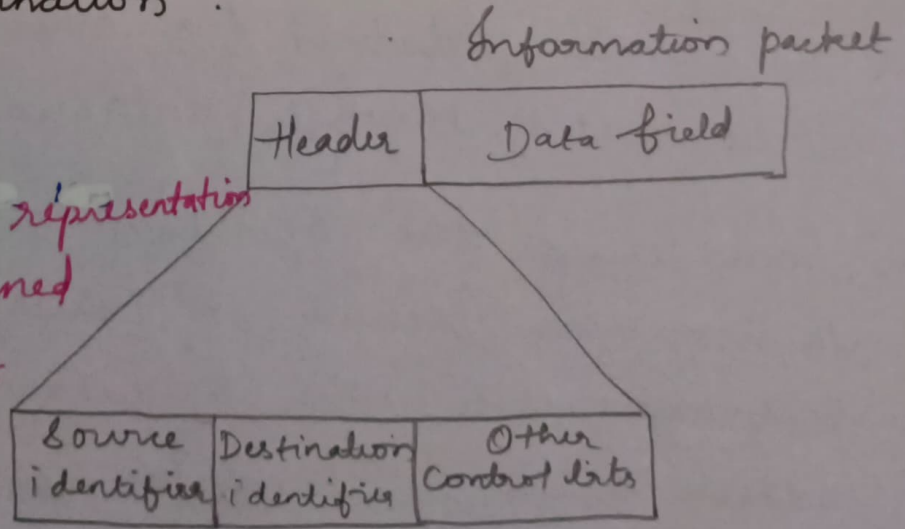 Information packet
Header
Data field
representation
Source
identifier
Destination
identifier
Other
Control bits